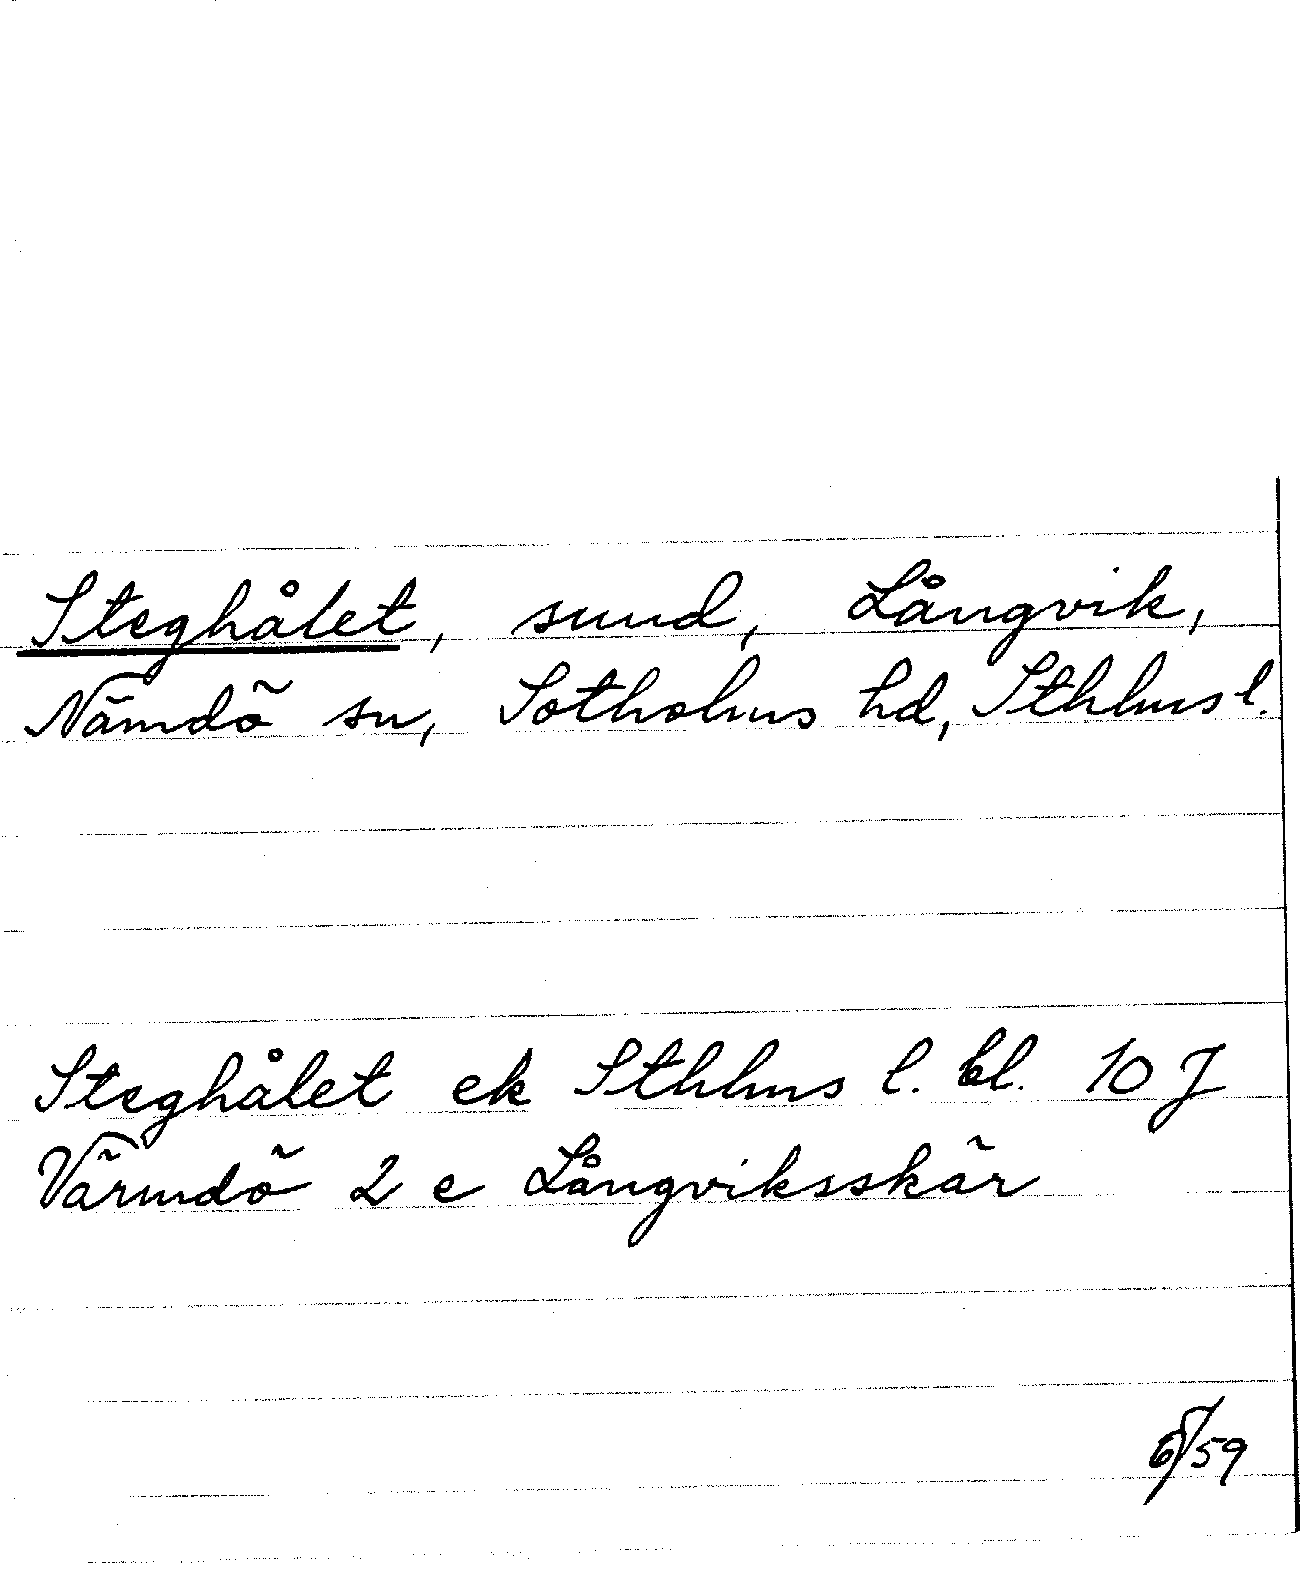 Steghålet, sund, Långvik,
Nämdö sn, Sotholms hd, Sthlms l.
Steghålet ek Sthlms l. bl. 10 J
Värmdö 2 c Långviksskär
/59